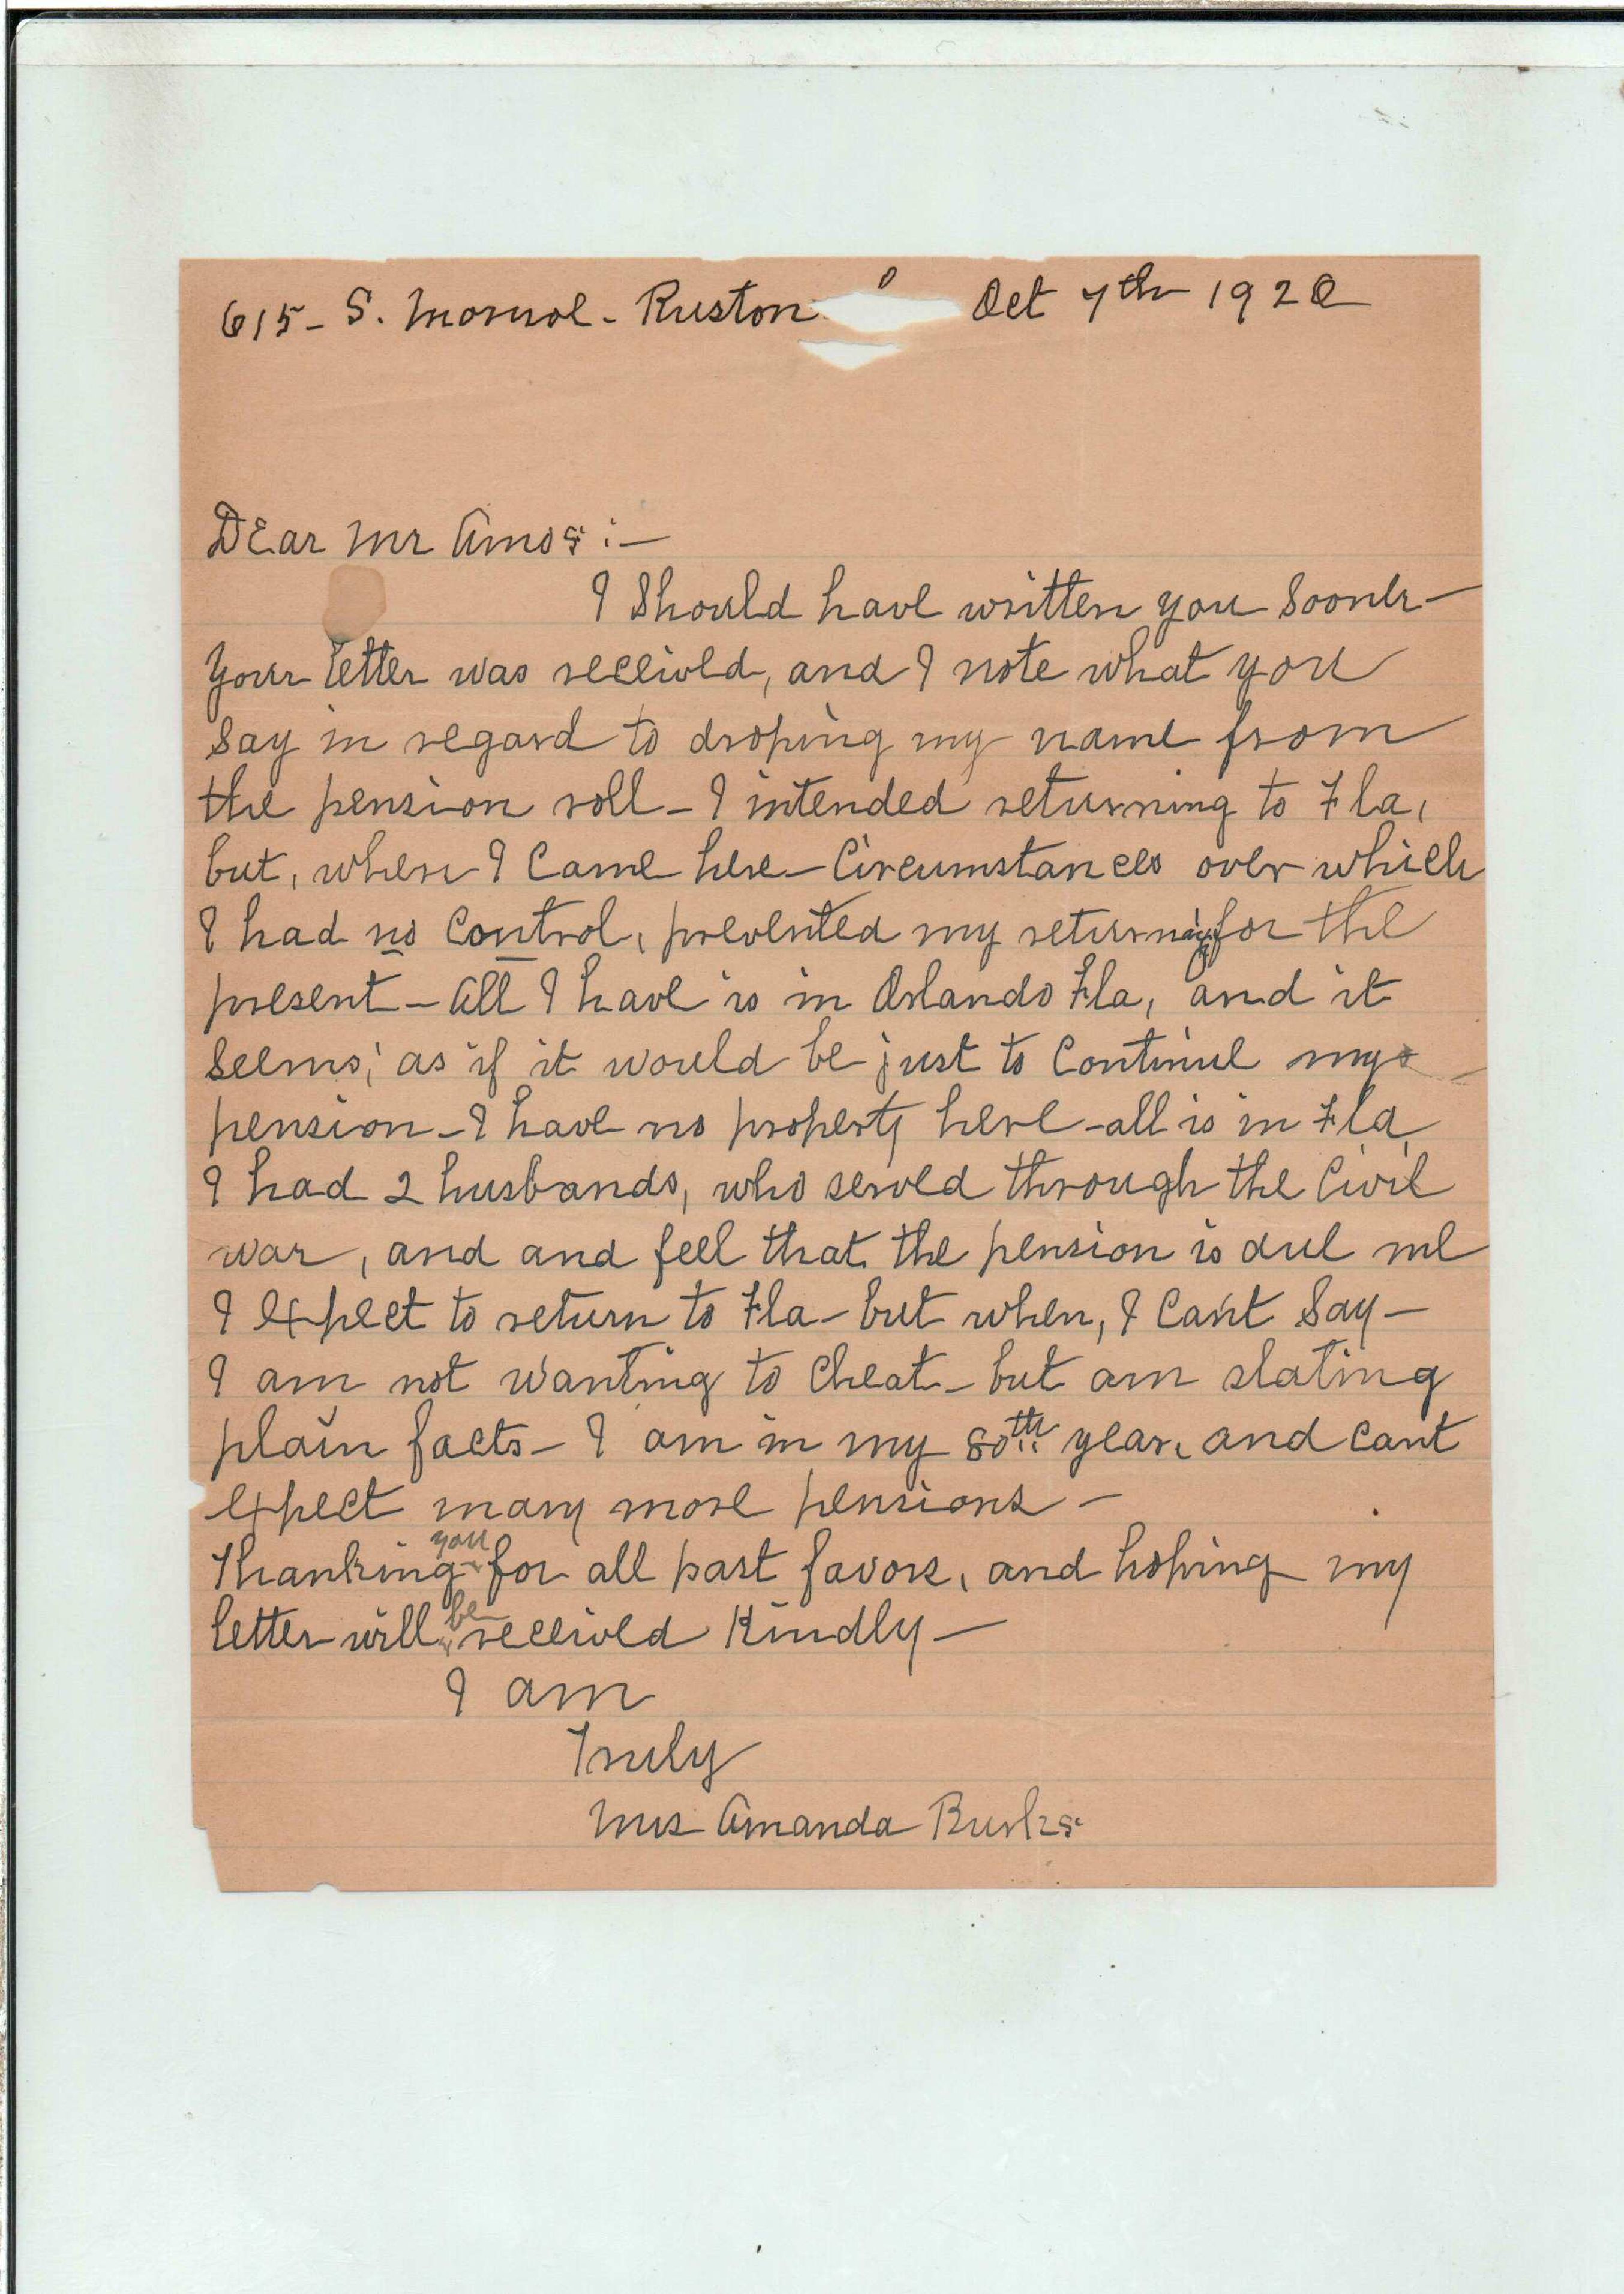 615- S. Monroe - Ruston Oct 7th 1920
Dear Mr Amos :-
I should have written you sooner-
Your letter was received, and I note what you
say in regard to droping my name from
the pension roll - I intended returning to Fla,
but, when I came here - Circumstances over which
I had no control, prevented my returning for the
present - All I have is in Orlando Fla, and it
seems, as if it would be just to continue my
pension - I have no property here - all is in Fla
I had 2 husbands, who served through the Civil
war, and and feel that the pension is due me
I expect to return to Fla - but when, I can't say -
I am not wanting to cheat - but am stating
plain facts - I am in my 80th year, and cant
expect many more pensions -
Thanking you for all past favors, and hoping my
letter will be received kindly -
I am
Truly
Mrs Amanda